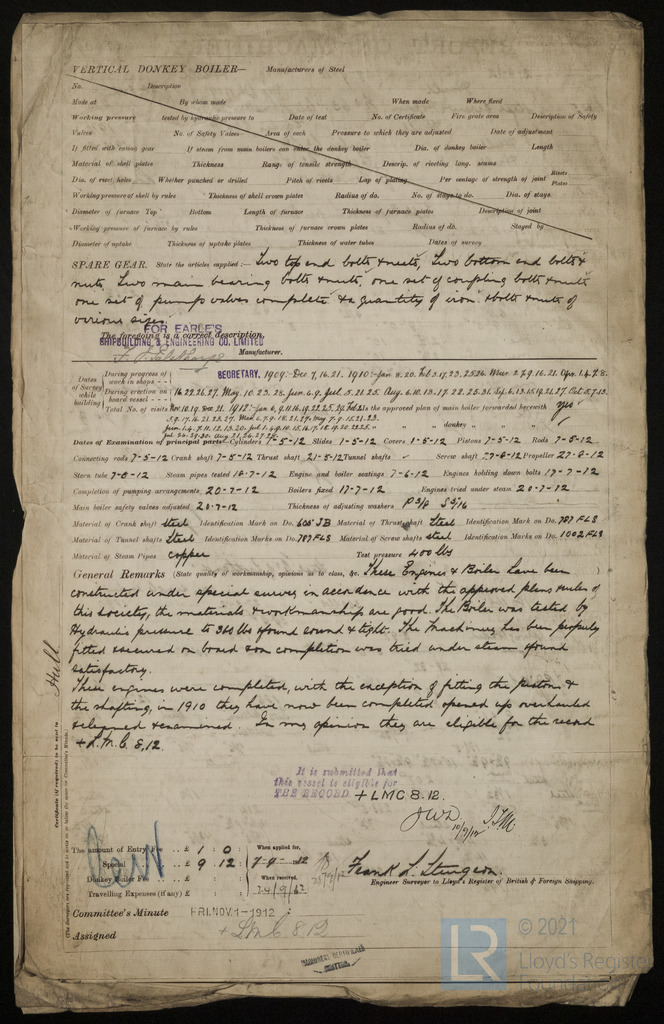 VERTICAL DONKEY BOILER— Manufacturers of Steel
No. Description
Made at By whom made When made Where fixed
Working pressure tested by hydraulic pressure to Date of test No. of Certificate Fire grate area Description of Safety
Valves No. of Safety Valves Area of each Pressure to which they are adjusted Date of adjustment
If fitted with easing gear If steam from main boilers can enter the donkey boiler Dia. of donkey boiler Length
Material of shell plates Thickness Range of tensile strength Descrip. of riveting long. seams
Dia. of rivet holes Whether punched or drilled Pitch of rivets Lap of plating Per centage of strength of joint Rivets Plates
Working pressure of shell by rules Thickness of shell crown plates Radius of do. No. of stays to do. Dia. of stays
Diameter of furnace Top Bottom Length of furnace Thickness of furnace plates Description of joint
Working pressure of furnace by rules Thickness of furnace crown plates Radius of do. Stayed by
Diameter of uptake Thickness of uptake plates Thickness of water tubes Dates of survey
SPARE GEAR. State the articles supplied:— Two top end bolts & nuts, Two bottom end bolts &
nuts, Two main bearing bolts & nuts, one set of coupling bolts & nuts
one set of pumps valves complete & a quantity of iron & bolts & nuts of
various sizes.
The foregoing is a correct description,
FOR EARLE'S
SHIPBUILDING & ENGINEERING CO. LIMITED
Manufacturer.
SECRETARY.
Dates of Survey while building
During progress of work in shops -- 1909: Dec 7, 16. 21. 1910: Jan
During erection on board vessel --- 16 22. 26. 27. May. 10. 23. 28.
Total No. of visits Is the approved plan of main boiler forwarded herewith yes
" " " donkey " " "
Dates of Examination of principal parts—Cylinders 7-5-12 Slides 1-5-12 Covers 1-5-12 Pistons 7-5-12 Rods 7-5-12
Connecting rods 7-5-12 Crank shaft 7-5-12 Thrust shaft 21-5-12 Tunnel shafts Screw shaft 27-6-12 Propeller 27-6-12
Stern tube 7-6-12 Steam pipes tested 18-7-12 Engine and boiler seatings 7-6-12 Engines holding down bolts 17-7-12
Completion of pumping arrangements 20-7-12 Boilers fixed 17-7-12 Engines tried under steam 20-7-12
Main boiler safety valves adjusted 20-7-12 Thickness of adjusting washers P 3/8 S 5/16
Material of Crank shaft steel Identification Mark on Do. 606 JB Material of Thrust shaft Steel Identification Mark on Do. 787 FLS
Material of Tunnel shafts Steel Identification Marks on Do. 787 FLS Material of Screw shafts steel Identification Marks on Do. 1002 FLS
Material of Steam Pipes copper Test pressure 400 lbs
General Remarks (State quality of workmanship, opinions as to class, &c. These Engines & Boiler have been
constructed under special survey in accordance with the approved plans & rules of
this society, the materials & workmanship are good. The Boiler was tested by
Hydraulic pressure to 360 lbs & found sound & tight. The machinery has been properly
fitted & secured on board & on completion was tried under steam & found
satisfactory.
These engines were completed, with the exception of fitting the pistons &
the shafting, in 1910 they have now been completed opened up overhauled
& cleaned & examined. In my opinion they are eligible for the record
+ L.M.C. 8,12
It is submitted that
this vessel is eligible for
THE RECORD + LMC 8.12.
10/9/12
Hull
Certificate (if required) to be sent to
(The Surveyors are requested not to write on or below the space for Committee's Minute.)
The amount of Entry Fee .. £ 1 : 0 : When applied for,
Special .. £ 9 . 12 : 7-9-12
Donkey Boiler Fee .. £ : : When received,
Travelling Expenses (if any) £ : : 24/9/12
Frank L. Sturgeon.
Engineer Surveyor to Lloyd's Register of British & Foreign Shipping.
Committee's Minute FRI. NOV. 1-1912
Assigned + L.M.C. 8.12
MACHINERY CERTIFICATE
WRITTEN.
© 2021
LR Lloyd's Register
Foundation